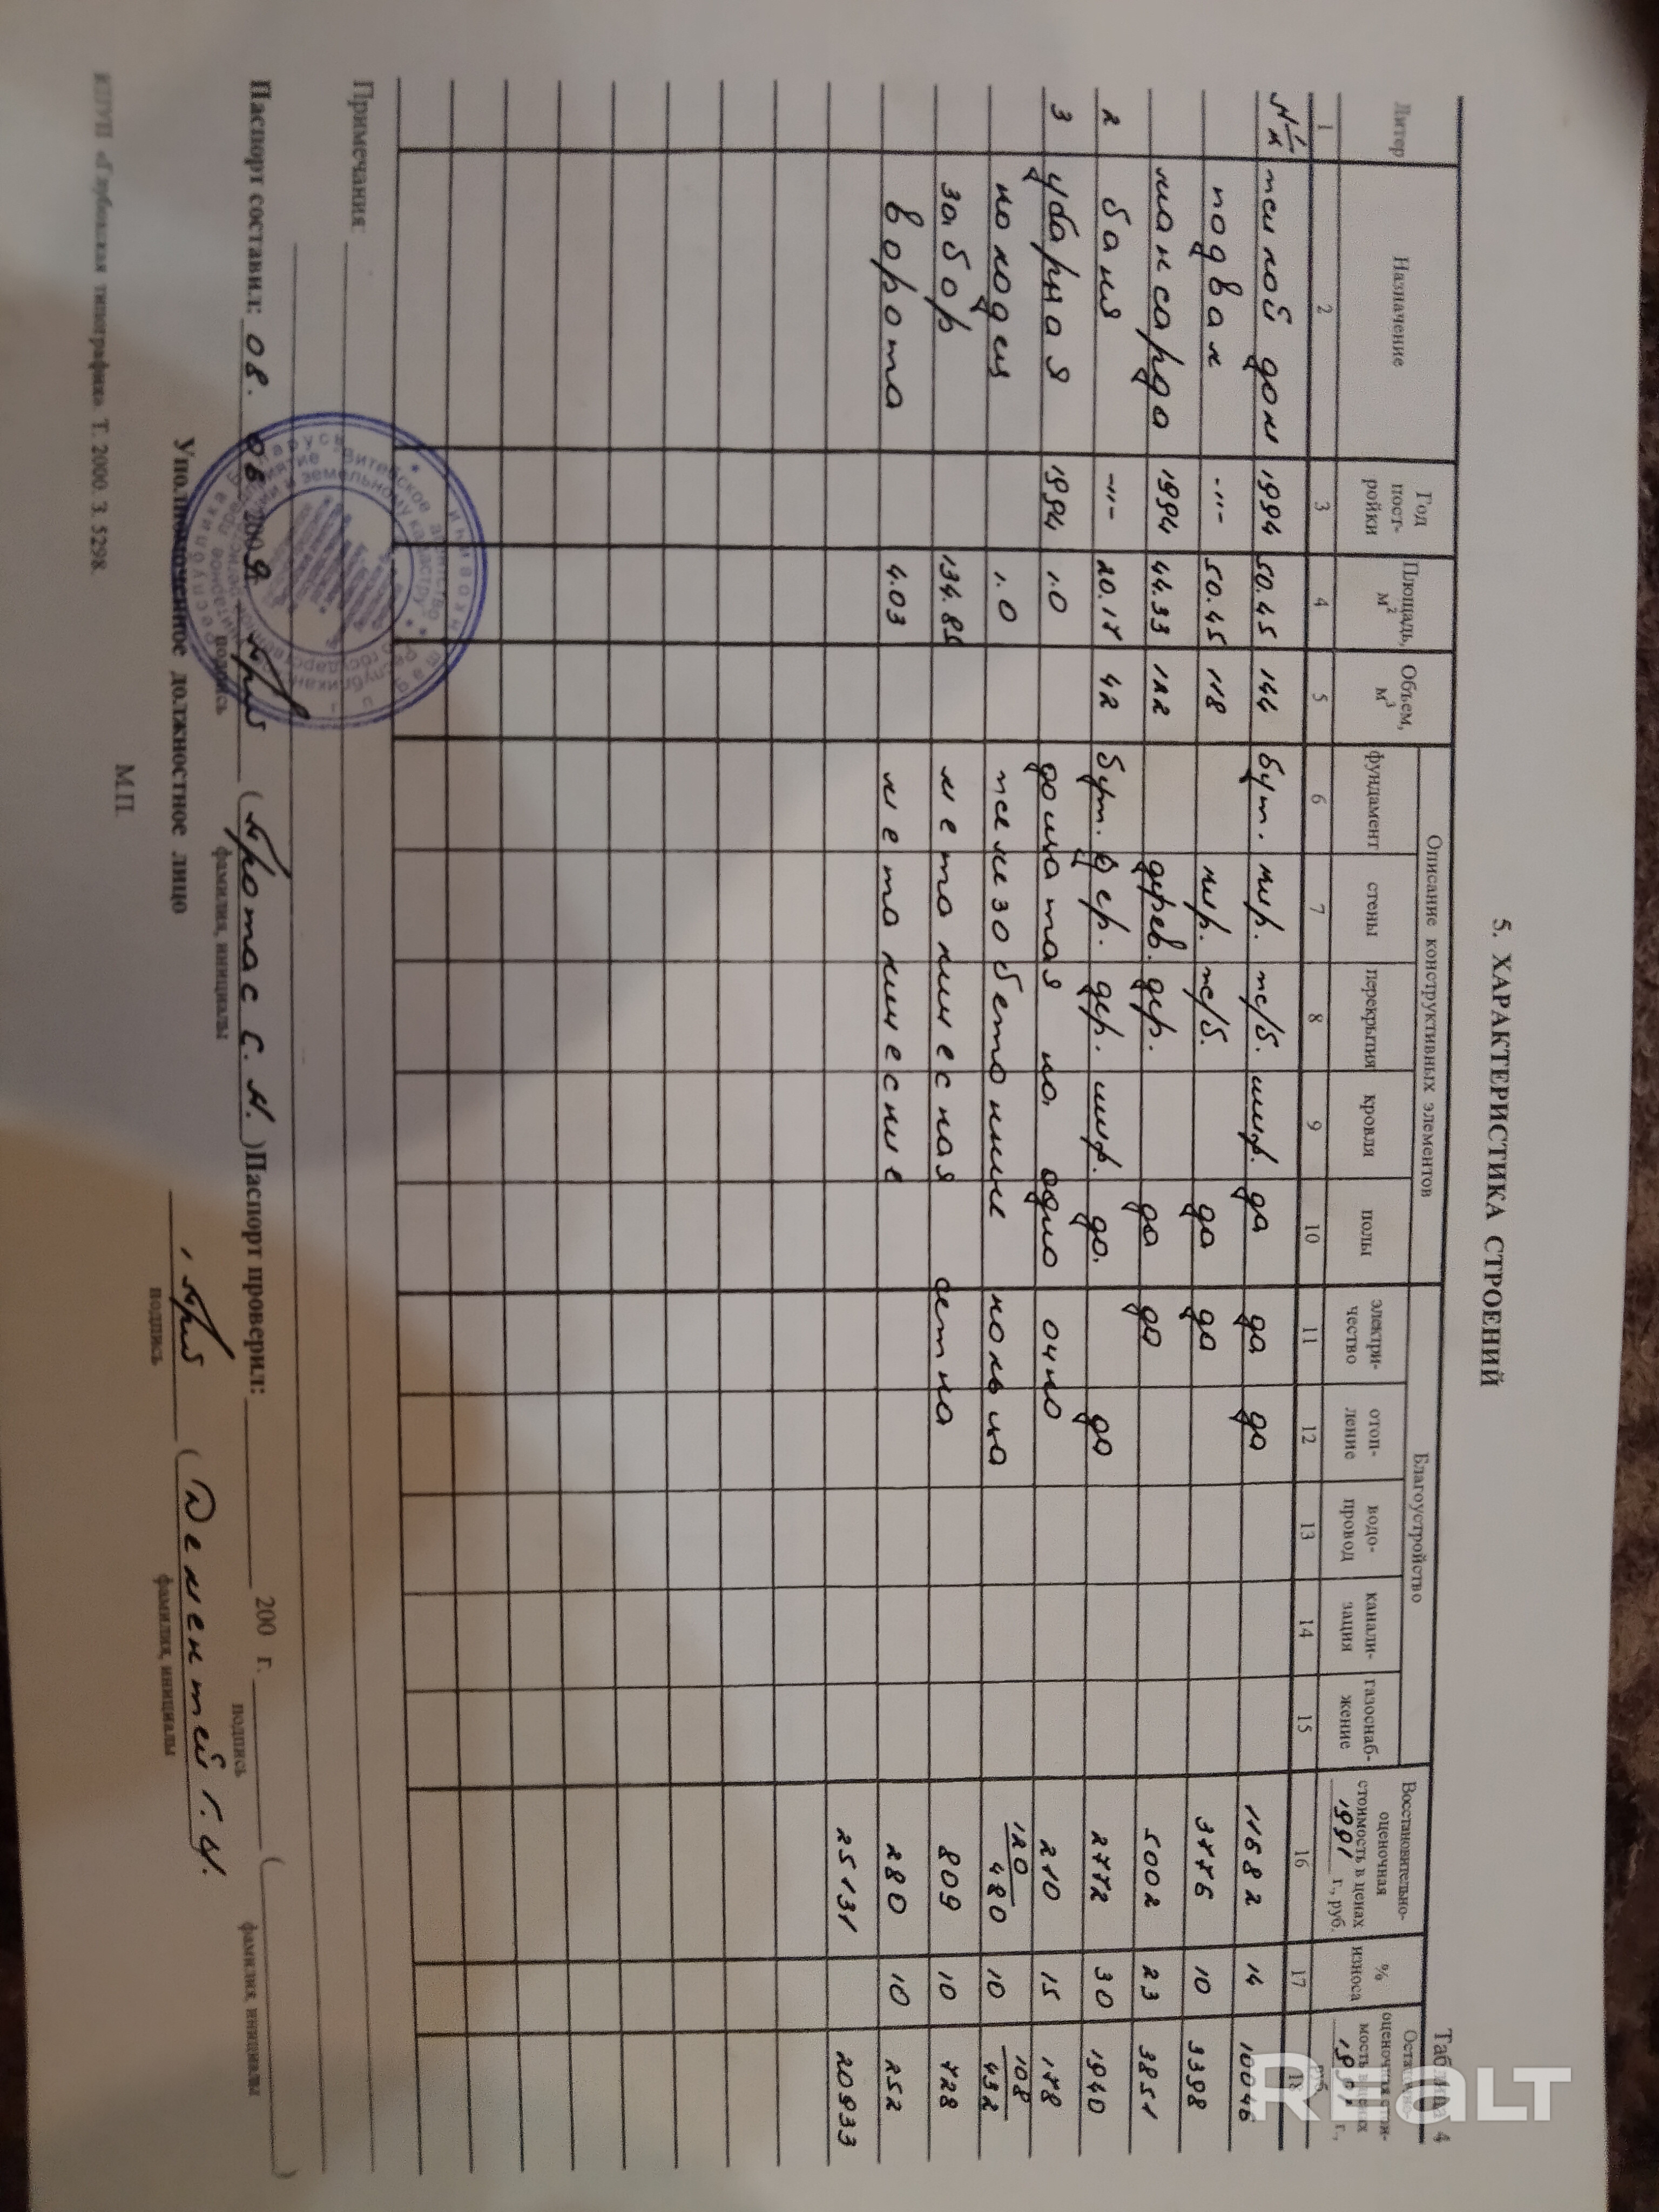 5. ХАРАКТЕРИСТИКА СТРОЕНИЙ
Таблица 4
Литер Назначение Год пост-ройки Площадь, м² Объем, м³ Описание конструктивных элементов Благоустройство Восстановительно-оценочная стоимость в ценах 1991 г., руб. % износа
фундамент стены перекрытия кровля полы электри-чество отоп-ление водо-провод канали-зация газоснаб-жение
1 2 3 4 5 6 7 8 9 10 11 12 13 14 15 16 17 18
1/к жилой дом 1994 50.45 144 бут. кир. ж/б. шиф. да да да 11682 14 10046
подвал -"- 50.45 118 кир. ж/б. да да 3776 10 3398
мансарда 1994 44.33 122 дерев. дер. да да 5002 23 3851
2 баня -"- 20.17 42 бут. дер. дер. шиф. да да 2772 30 1940
3 уборная 1994 1.0 дощатая на одно очко 210 15 178
колодец 1.0 железобетонные кольца 120 480 10 108 432
забор 134.85 металическая сетка 809 10 728
ворота 4.03 металические 280 10 252
25131 20933
Примечания:
Паспорт составил: 08. 06 2009 (Кротас С. Н.) Паспорт проверил: 200 г. ( )
подпись фамилия, инициалы подпись фамилия, инициалы
Уполномоченное должностное лицо (Дементей Г. И.
подпись фамилия, инициалы
М.П.
КПУП «Глубокая типография» Т. 2000. З. 5298.
Realt